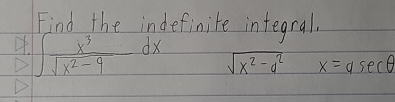 Find the indefinite integral.
∫ x³/√(x² - 9) dx √(x² - a²) x = a sec θ